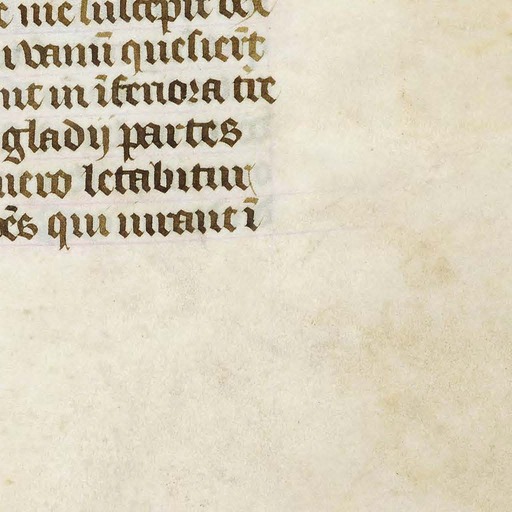 me suscepit dex
vanū quesierūt
nt in īferiora tre
gladij partes
vero letabitur
ēs qui iurant ī